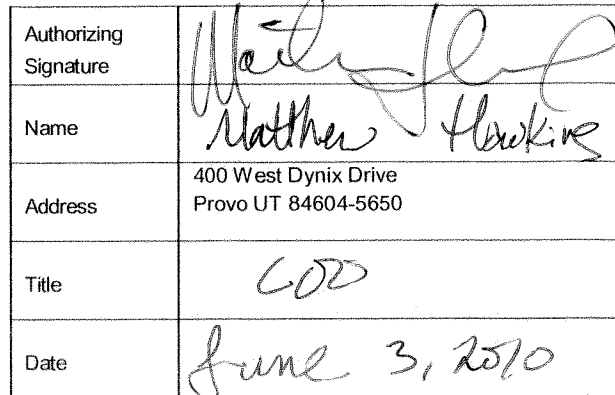 Authorizing
Signature
Name Matthew Hawkins
Address 400 West Dynix Drive
Provo UT 84604-5650
Title COO
Date June 3, 2010